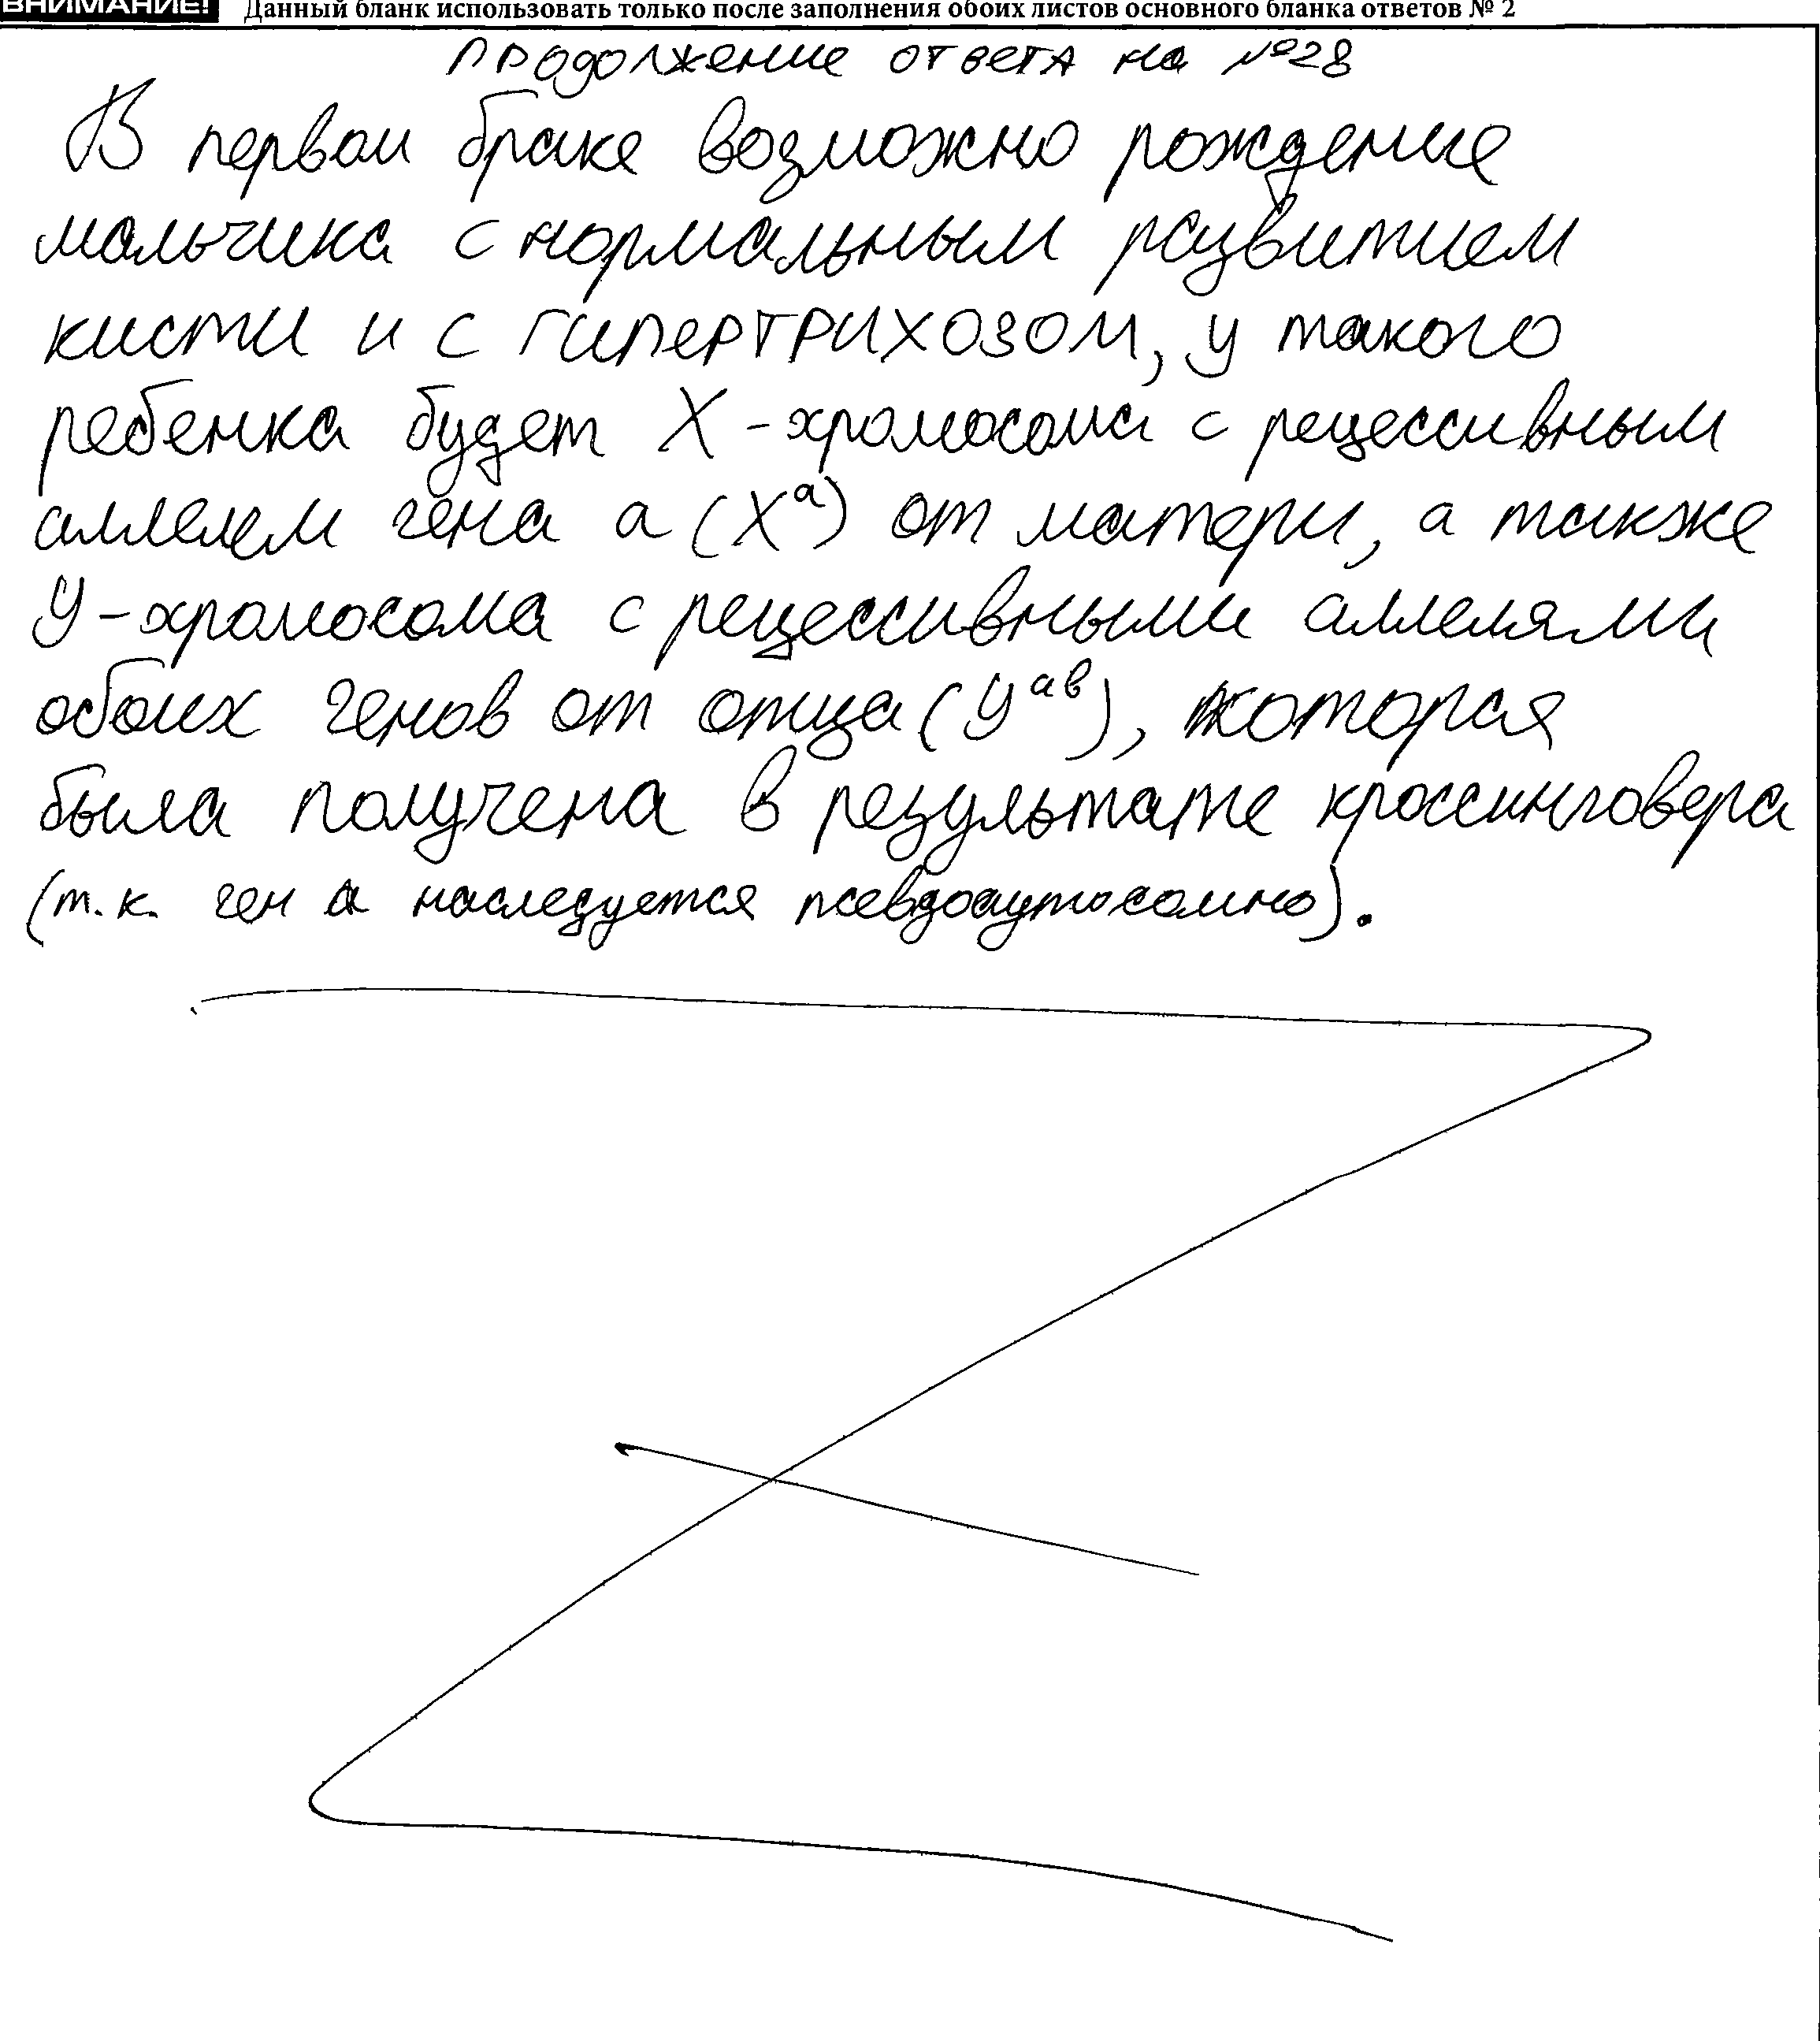 ВНИМАНИЕ! Данный бланк использовать только после заполнения обоих листов основного бланка ответов № 2
продолжение ответа на №28
В первом браке возможно рождение
мальчика с нормальным развитием
кисти и с гипертрихозом, у такого
ребенка будет X-хромосома с рецессивным
аллелем гена а (Xᵃ) от матери, а также
У-хромосома с рецессивными аллелями
обоих генов от отца (Уᵃᵇ), которая
была получена в результате кроссинговера
(т.к. ген а наследуется псевдоаутосомно).